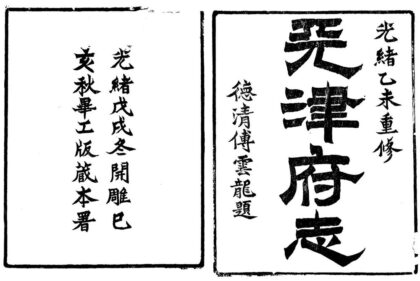 光緒乙未重修
天津府志
德清傅雲龍題
光緒戊戌冬開雕已
亥秋畢工版藏本署